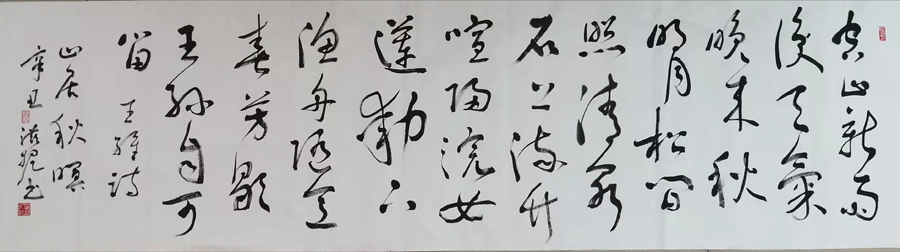 空山新雨
後天氣
晚来秋
明月松间
照清泉
石上流竹
喧归浣女
莲動下
渔舟随意
春芳歇
王孙自可
留 王維诗
山居秋暝
辛丑 书